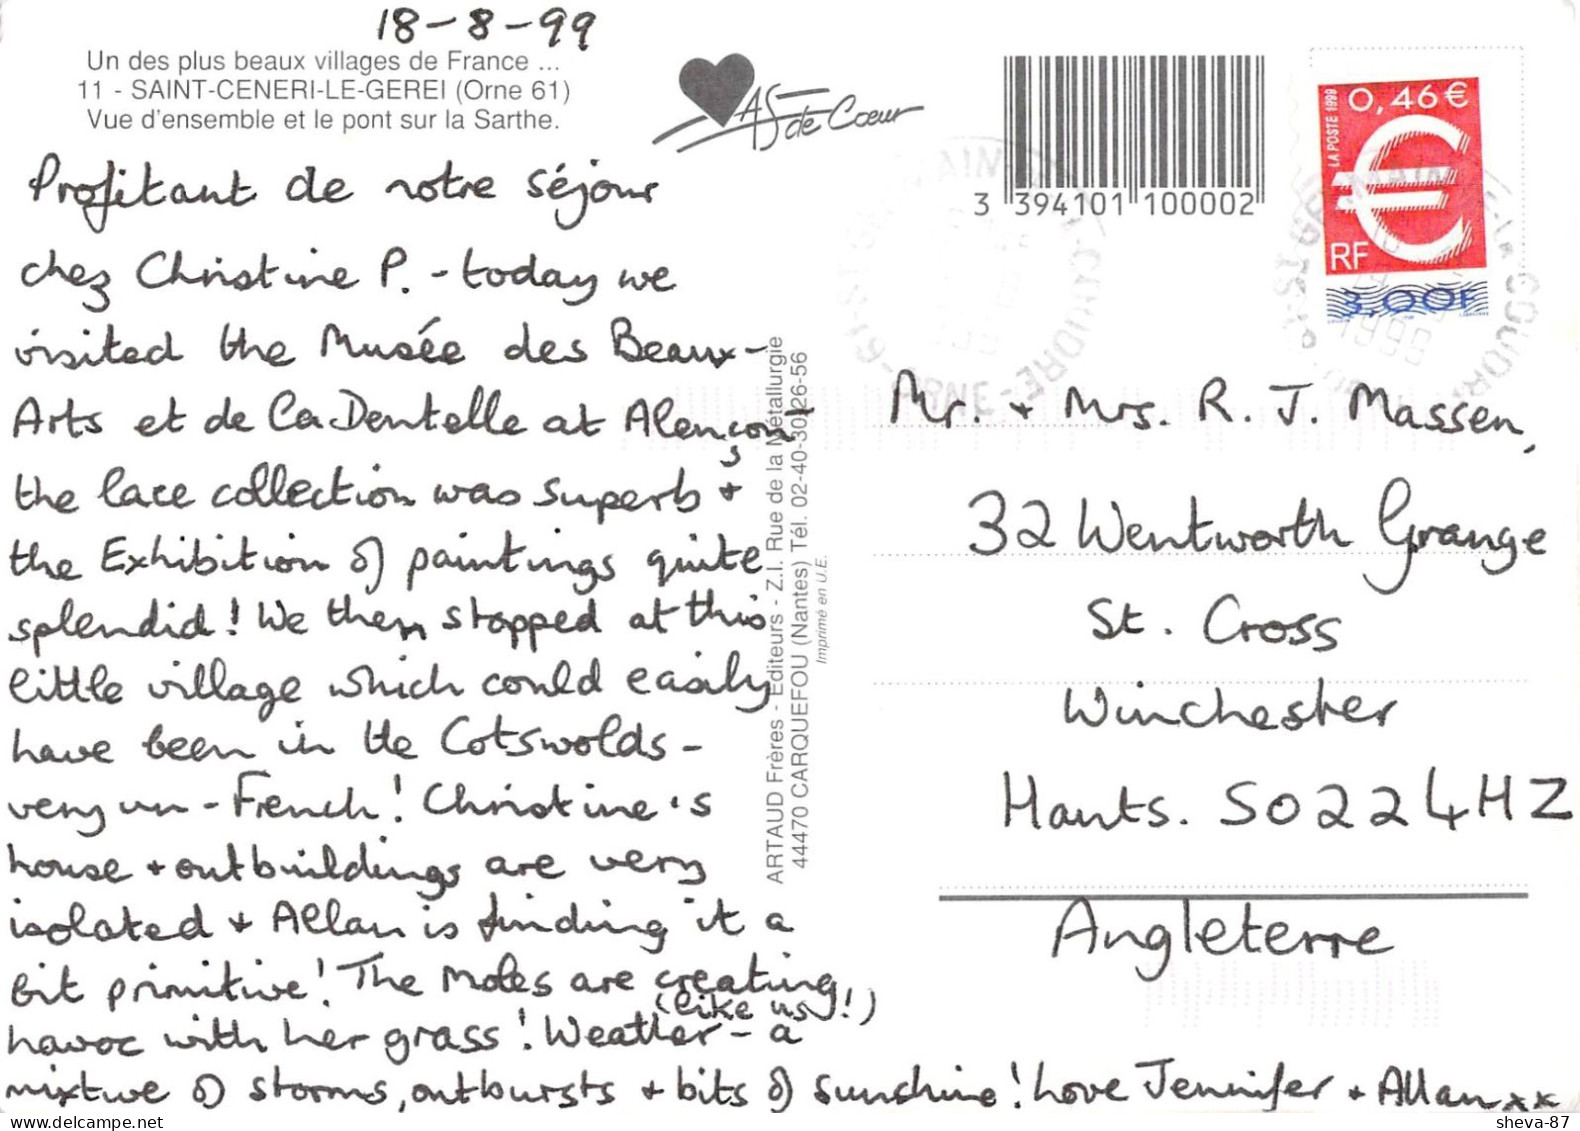 18-8-99
Un des plus beaux villages de France ...
11 - SAINT-CENERI-LE-GEREI (Orne 61)
Vue d'ensemble et le pont sur la Sarthe.
AS de Cœur
3 394101 100002
LA POSTE 1999
0,46 €
RF
3,00F
Profitant de notre séjour
chez Christine P. - today we
visited the Musée des Beaux-
Arts et de la Dentelle at Alençon -
the lace collection was superb +
the Exhibition of paintings quite
splendid! We then stopped at this
little village which could easily
have been in the Cotswolds -
very un-French! Christine's
house + outbuildings are very
isolated + Allan is finding it a
bit primitive! The moles are creating
(like us!)
havoc with her grass! Weather - a
mixture of storms, outbursts + bits of sunshine! Love Jennifer + Allan xx
ARTAUD Frères - Editeurs - Z.I. Rue de la Métallurgie
44470 CARQUEFOU (Nantes) Tél. 02-40-30-26-56
Imprimé en U.E.
Mr. + Mrs. R. J. Massen,
32 Wentworth Grange
St. Cross
Winchester
Hants. SO22 4HZ
Angleterre
sheva-87